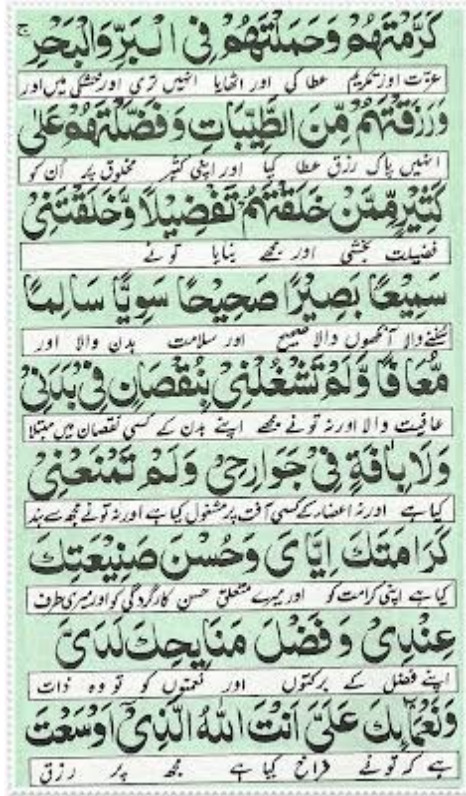 كَرَّمْتَهُمْ وَحَمَلْتَهُمْ فِي الْبَرِّ وَالْبَحْرِ ج
عزت اور تکریم عطا کی اور اٹھایا انہیں تری اور خشکی میں اور
وَرَزَقْتَهُمْ مِّنَ الطَّيِّبَاتِ وَفَضَّلْتَهُمْ عَلٰى
انہیں پاک رزق عطا کیا اور اپنی کثیر مخلوق پر اُن کو
كَثِيْرٍ مِّمَّنْ خَلَقْتَهُمْ تَفْضِيْلًا وَّخَلَقْتَنِيْ
فضیلت بخشی اور مجھے بنایا تو نے
سَمِيْعًا بَصِيْرًا صَحِيْحًا سَوِيًّا سَالِمًا
سننے والا آنکھوں والا صحیح اور سلامت بدن والا اور
مُّعَافًا وَّلَمْ تَشْغَلْنِيْ بِنُقْصَانٍ فِيْ بَدَنِيْ
عافیت والا اور نہ تو نے مجھے اپنے بدن کے کسی نقصان میں مبتلا
وَلَا بِاٰفَةٍ فِيْ جَوَارِحِيْ وَلَمْ تَمْنَعْنِيْ
کیا ہے اور نہ اعضاء کے کسی آفت پر مشغول کیا ہے اور نہ تو نے مجھ سے بند
كَرَامَتَكَ اِيَّايَ وَحُسْنَ صَنِيْعَتِكَ
کیا ہے اپنی کرامت کو اور میرے متعلق حسن کارگردگی کو اور میری طرف
عِنْدِيْ وَفَضْلَ مَنَايِحِكَ لَدَيَّ
اپنے فضل کے برکتوں اور نعمتوں کو تو وہ ذات
وَنَعْمَآئِكَ عَلَيَّ اَنْتَ اللهُ الَّذِيْ اَوْسَعْتَ
ہے کہ تو نے فراخ کیا ہے مجھ پر رزق